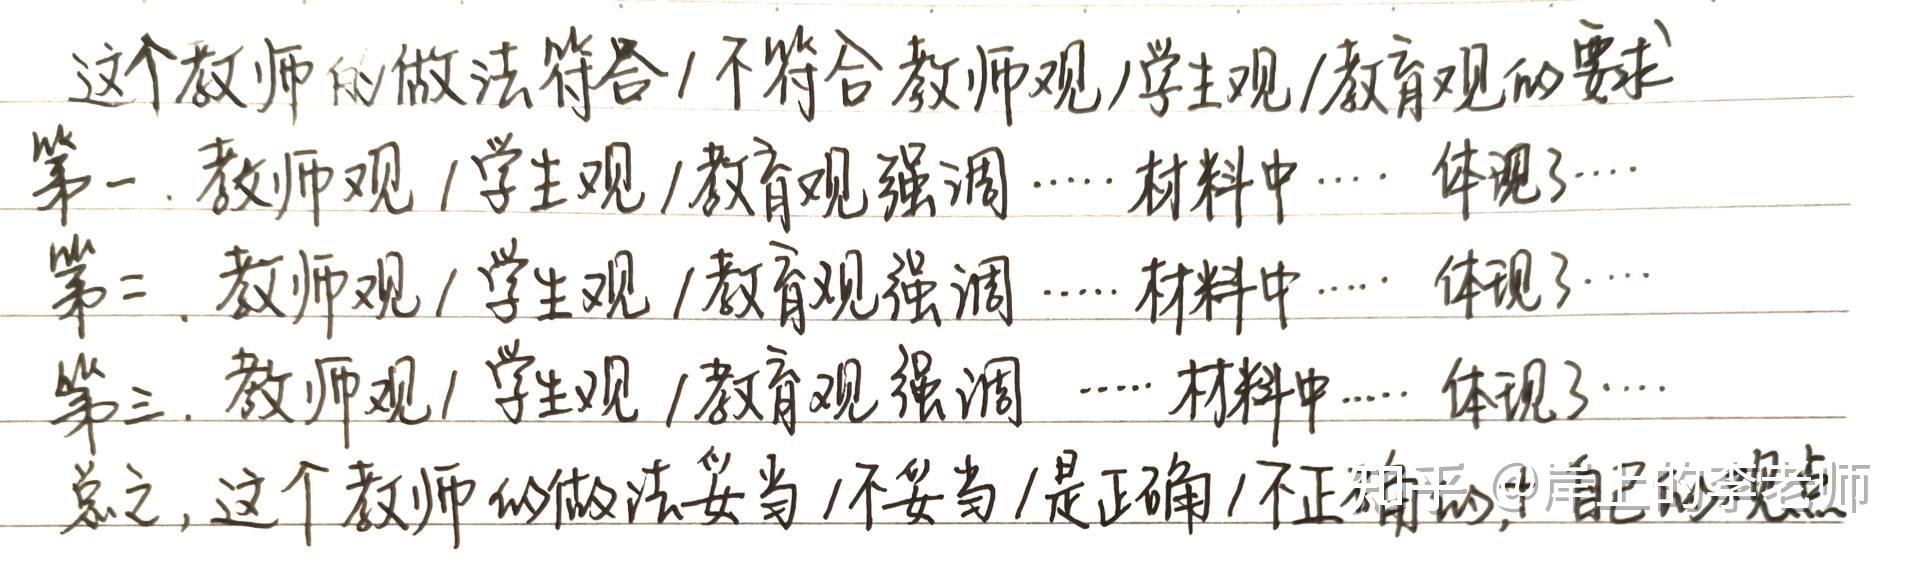 这个教师的做法符合/不符合教师观/学生观/教育观的要求
第一.教师观/学生观/教育观强调……材料中……体现了……
第二.教师观/学生观/教育观强调……材料中……体现了……
第三.教师观/学生观/教育观强调……材料中……体现了……
总之,这个教师的做法妥当/不妥当/是正确/不正确的,+自己的观点
知乎 @岸上的李老师